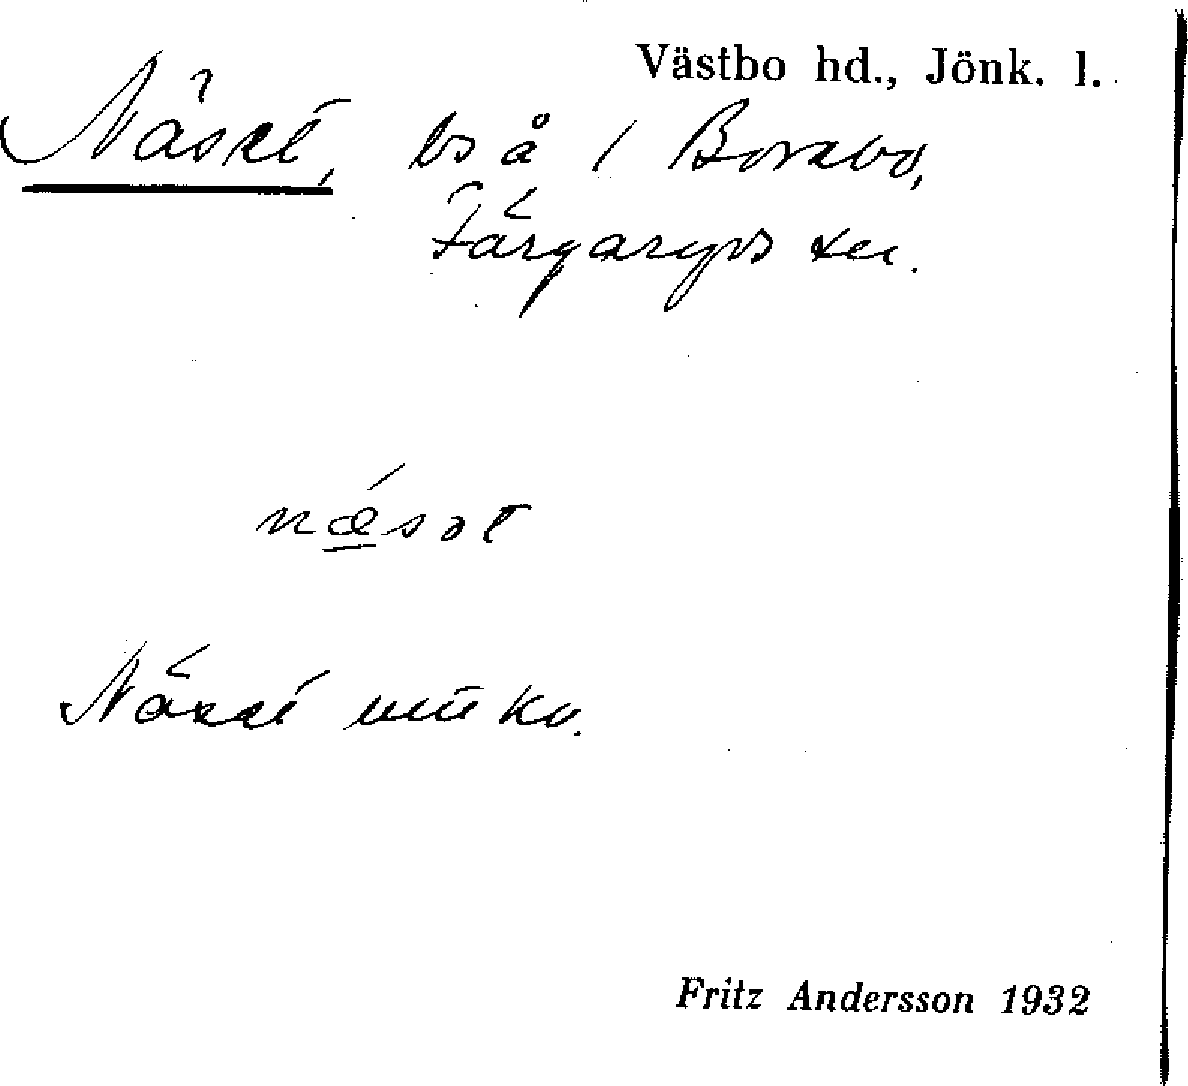 Västbo hd., Jönk. l.
Näset, bs å / Borabo,
Färgaryds sn.
nǽ̲sət
Näset
Fritz Andersson 1932